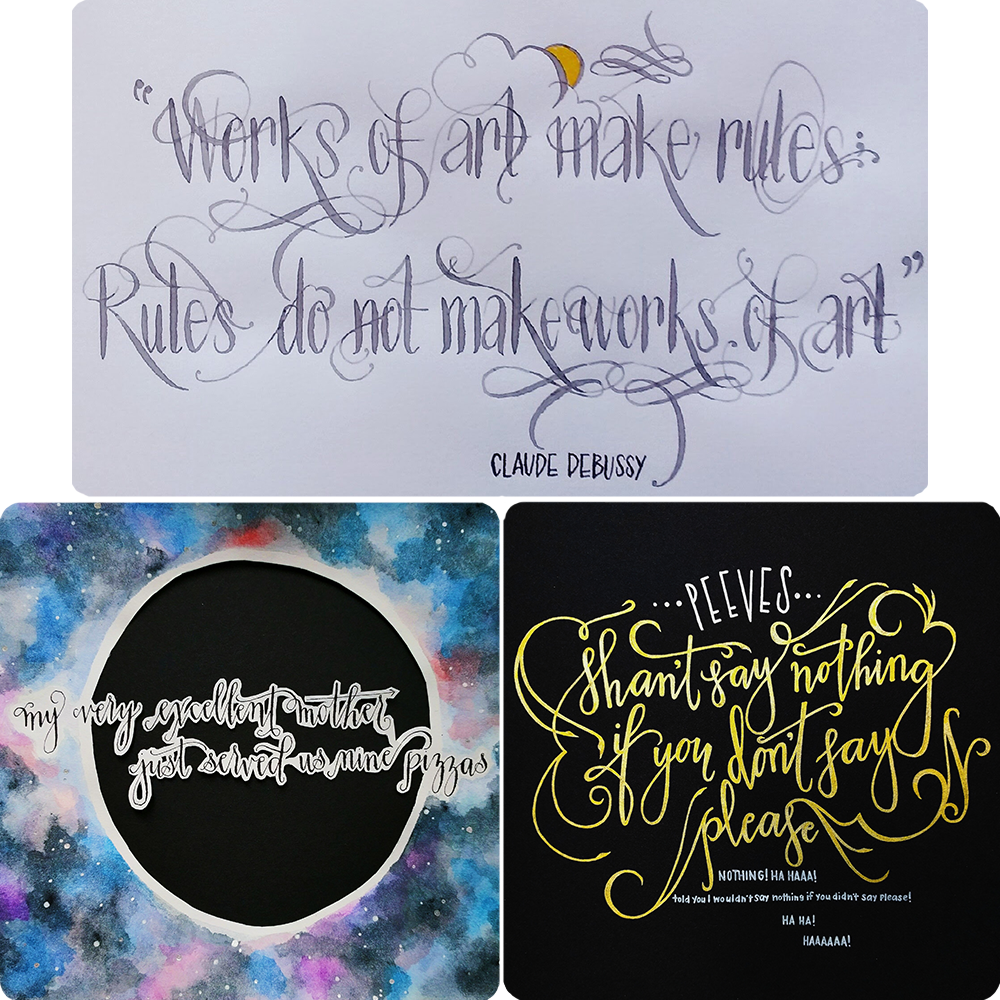 “Works of art make rules:
Rules do not make works of art”
CLAUDE DEBUSSY
my very excellent mother
just served us nine pizzas
...PEEVES...
Shan't say nothing
if you don't say
please
NOTHING! HA HAAA!
told you I wouldn't say nothing if you didn't say please!
HA HA!
HAAAAAA!